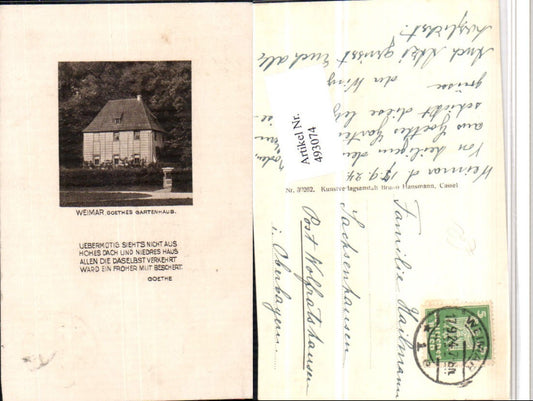 WEIMAR, GOETHES GARTENHAUS.
UEBERMÜTIG SIEHT'S NICHT AUS
HOHES DACH UND NIEDRES HAUS
ALLEN DIE DASELBST VERKEHRT
WARD EIN FROHER MUT BESCHERT.
GOETHE
Artikel Nr.
493074
Weimar d. 17.9.24.
Von
aus Goethes Garten
schickt diese
grüsse
Auch grüsst Euch alle
herzlichst.
Nr. 30262. Kunstverlagsanstalt Bruno Hansmann, Cassel
Familie
Sachsenhausen
Post Wolfratshausen
i. Oberbayern
5
WEIMAR
17.9.24.